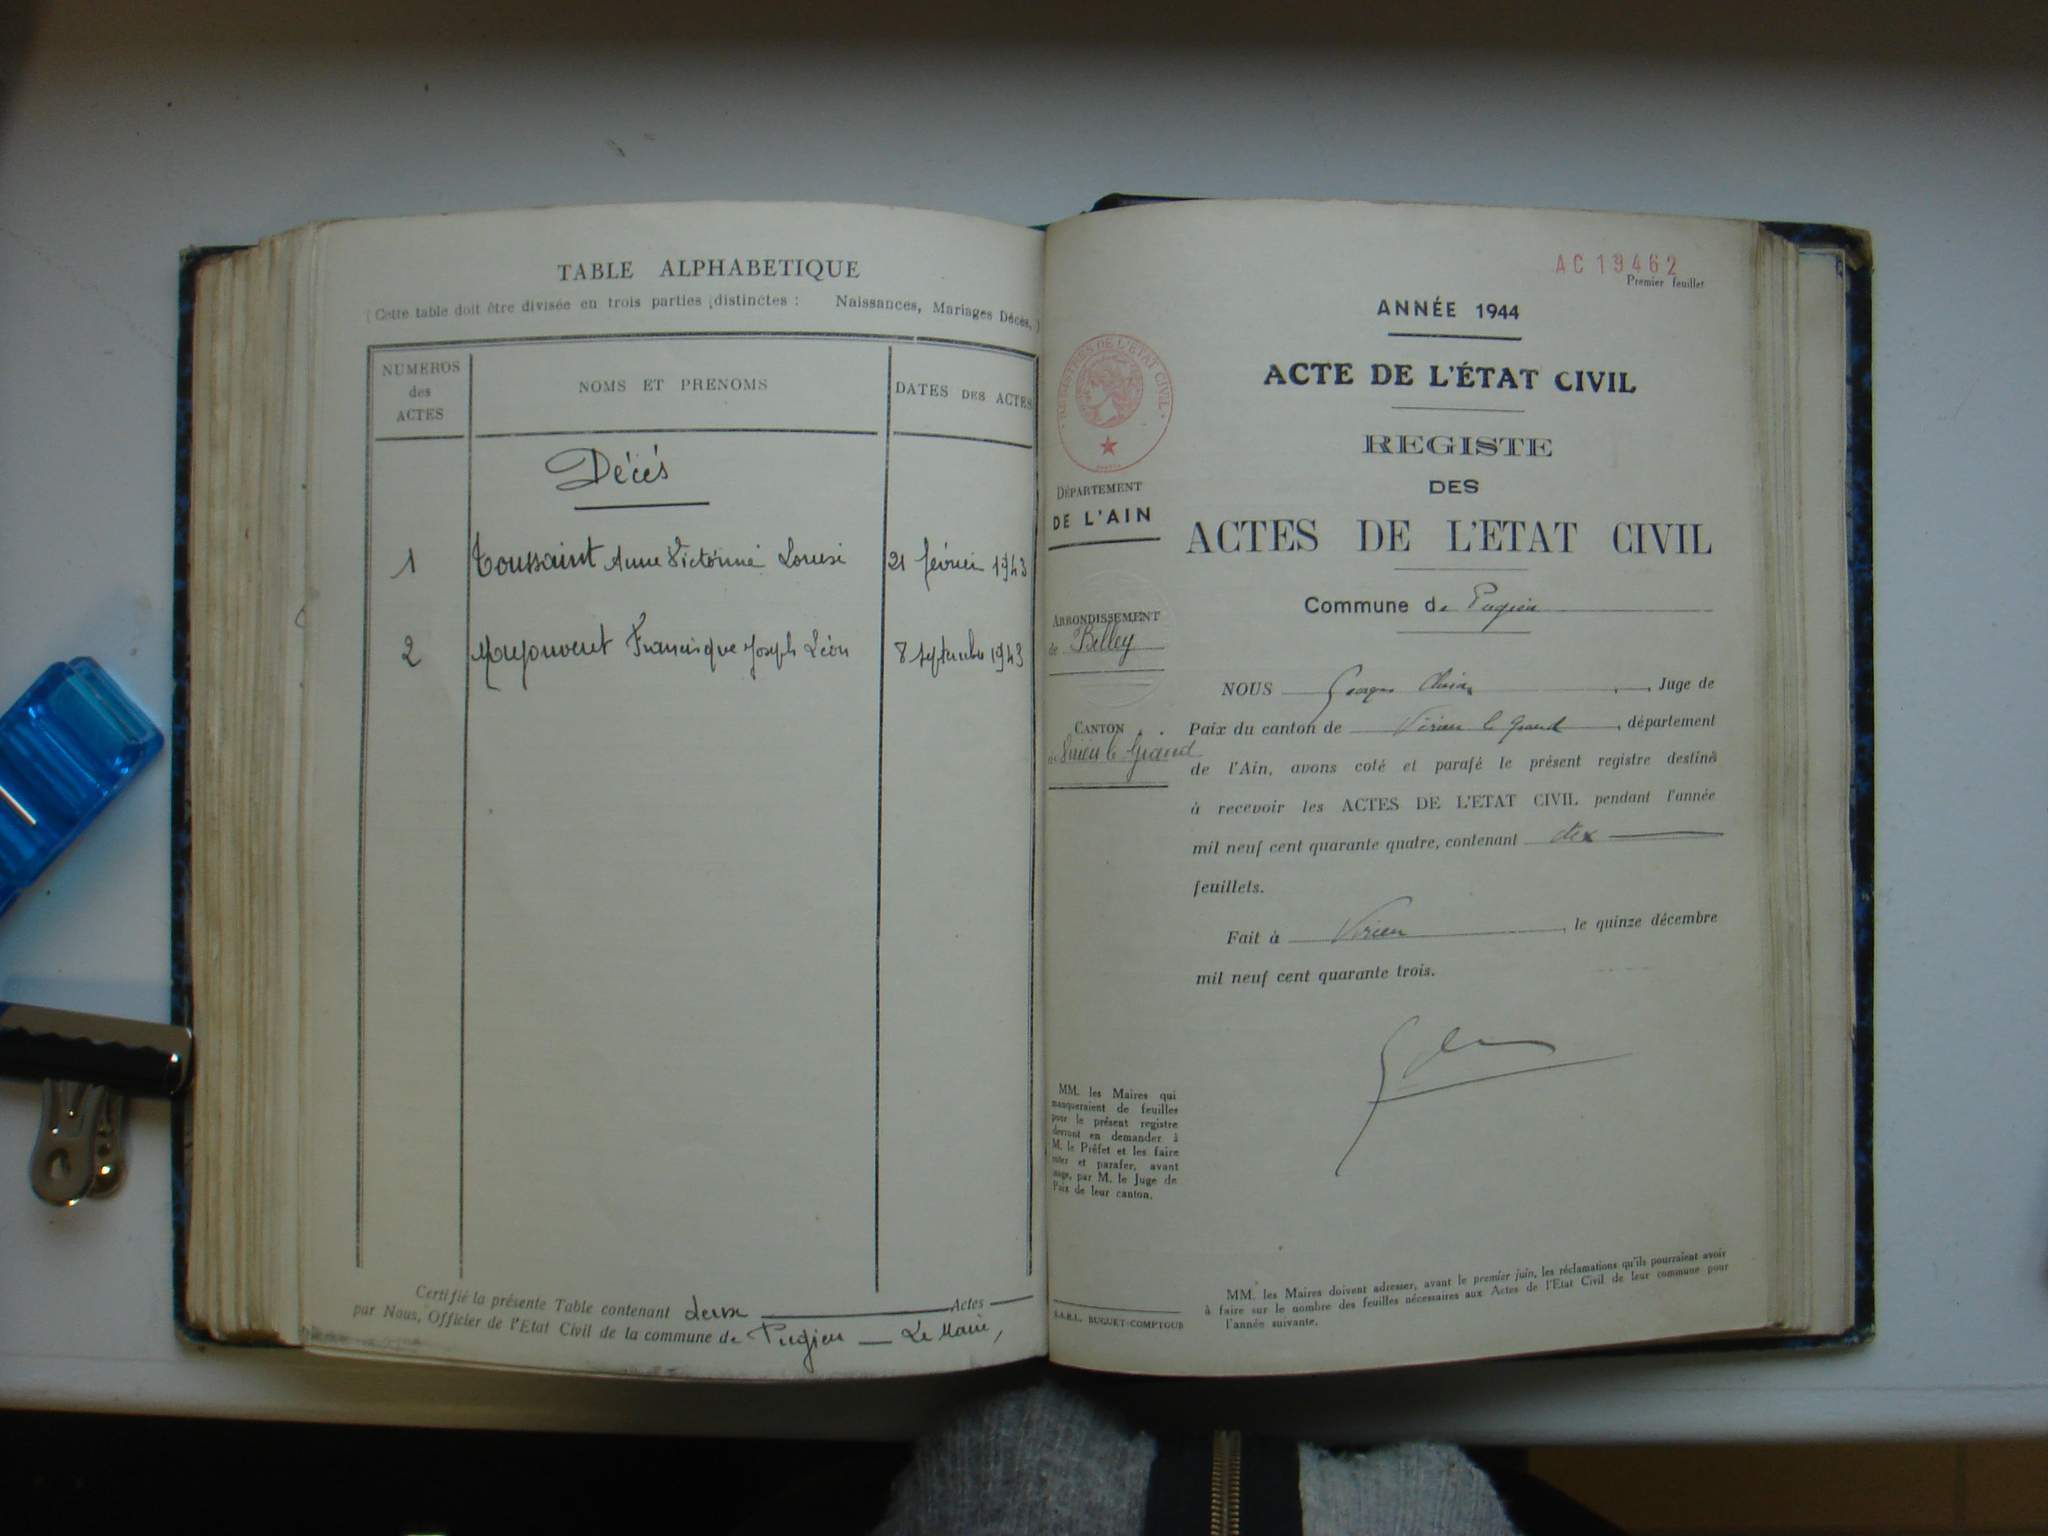 TABLE ALPHABETIQUE
(Cette table doit être divisée en trois parties distinctes : Naissances, Mariages Décès. )
NUMEROS des ACTES
NOMS ET PRENOMS
DATES DES ACTES
Décès
1 Toussaint Anne Victorine Louise 21 février 1943
2 Francisque Joseph Léon 8 septembre 1943
Certifié la présente Table contenant deux Actes
par Nous, Officier de l'Etat Civil de la commune de Pugieu Le Maire,
AC 19462
Premier feuillet
ANNÉE 1944
ACTE DE L'ÉTAT CIVIL
REGISTE
DES
ACTES DE L'ETAT CIVIL
Commune de Pugieu
REGISTRES DE L'ETAT CIVIL
DÉPARTEMENT
DE L'AIN
ARRONDISSEMENT
de Belley
CANTON
de Virieu le Grand
NOUS Georges , Juge de
Paix du canton de Virieu le Grand , département
de l'Ain, avons coté et parafé le présent registre destiné
à recevoir les ACTES DE L'ETAT CIVIL pendant l'année
mil neuf cent quarante quatre, contenant dix
feuillets.
Fait à Virieu , le quinze décembre
mil neuf cent quarante trois.
MM. les Maires qui
manqueraient de feuilles
pour le présent registre
devront en demander à
M. le Préfet et les faire
coter et parafer, avant
usage, par M. le Juge de
Paix de leur canton.
S.A.R.L. BUGUET-COMPTOUR
MM. les Maires doivent adresser, avant le premier juin, les réclamations qu'ils pourraient avoir
à faire sur le nombre des feuilles nécessaires aux Actes de l'Etat Civil de leur commune pour
l'année suivante.